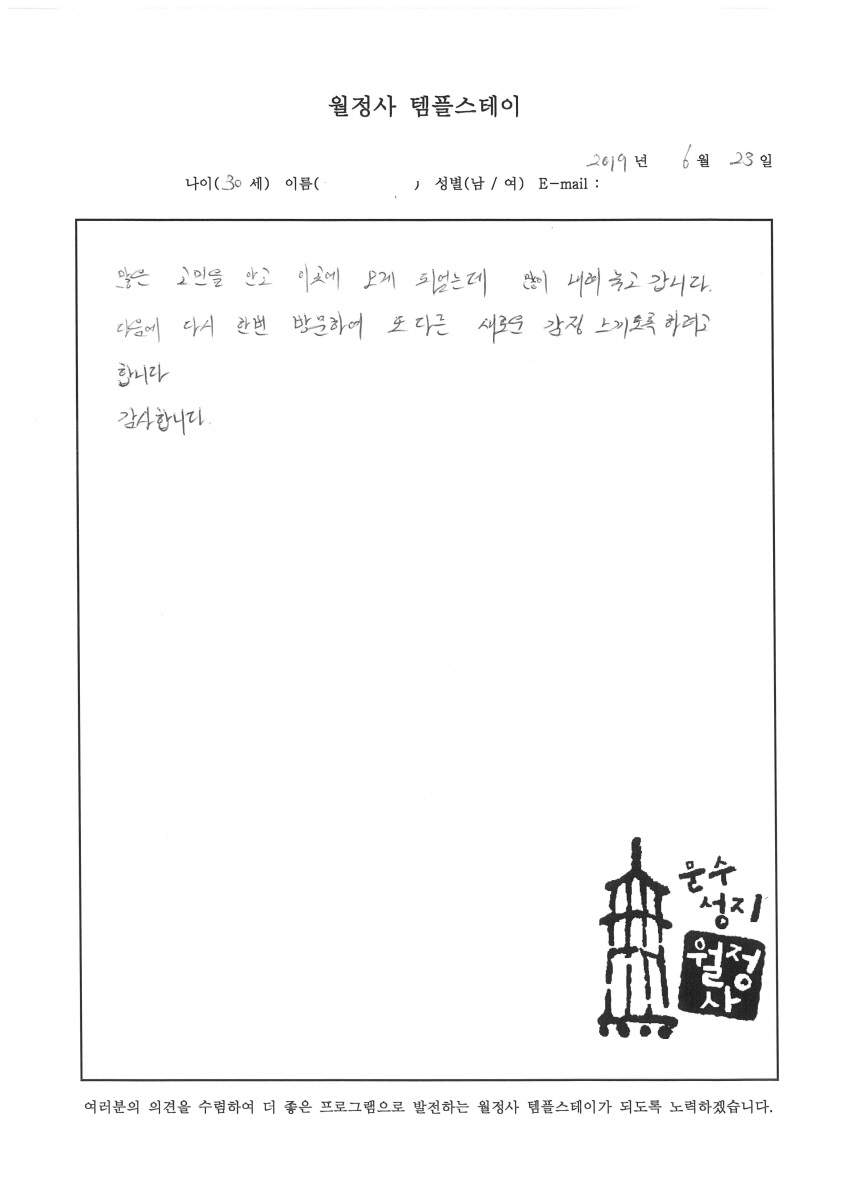 월정사 템플스테이
2019 년 6 월 23 일
나이(30 세) 이름( ) 성별(남 / 여) E-mail :
많은 고민을 안고 이곳에 오게 되었는데 많이 내려 놓고 갑니다.
다음에 다시 한번 방문하여 또 다른 새로운 감정 느끼도록 하려고
합니다
감사합니다.
문수
성지
월정
사
여러분의 의견을 수렴하여 더 좋은 프로그램으로 발전하는 월정사 템플스테이가 되도록 노력하겠습니다.